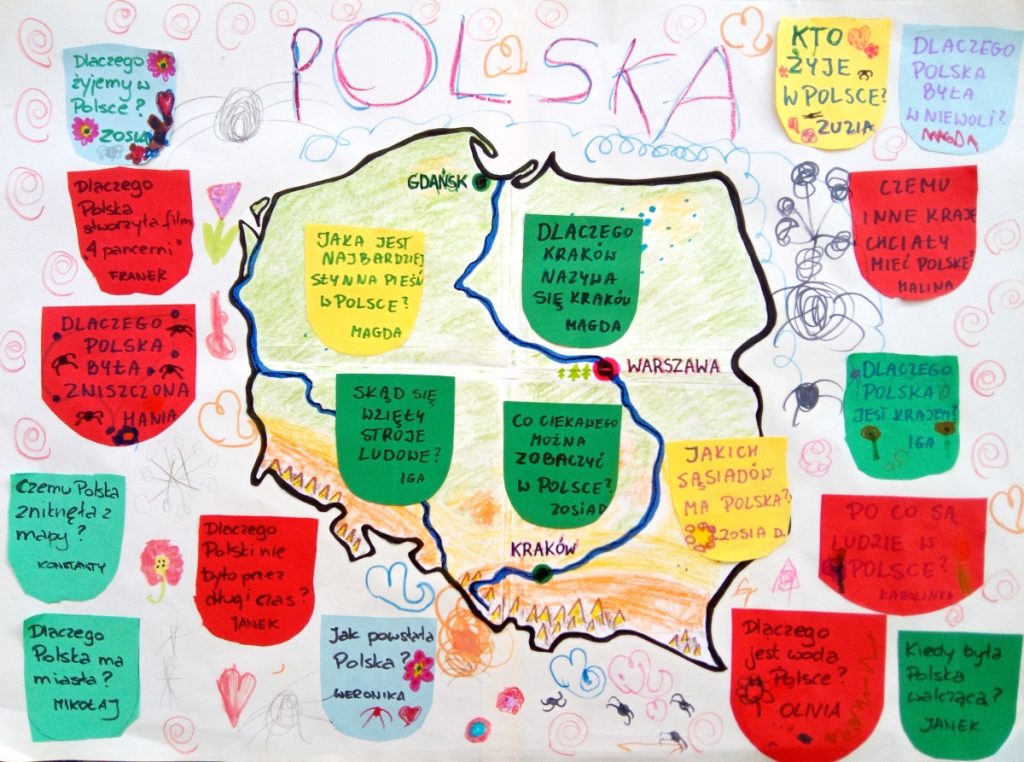 POLSKA
Dlaczego
żyjemy w
Polsce?
ZOSIA
KTO
ŻYJE
W POLSCE?
ZUZIA
DLACZEGO
POLSKA
BYŁA
W NIEWOLI?
MAGDA
Dlaczego
Polska
stworzyła film
"4 pancerni"
FRANEK
GDAŃSK
JAKA JEST
NAJBARDZIEJ
SŁYNNA PIEŚŃ
W POLSCE?
MAGDA
DLACZEGO
KRAKÓW
NAZYWA
SIĘ KRAKÓW
MAGDA
CZEMU
INNE KRAJE
CHCIAŁY
MIEĆ POLSKĘ?
MALINA
DLACZEGO
POLSKA
BYŁA
ZNISZCZONA
HANIA
WARSZAWA
SKĄD SIĘ
WZIĘŁY
STROJE
LUDOWE?
IGA
CO CIEKAWEGO
MOŻNA
ZOBACZYĆ
W POLSCE?
ZOSIA D.
DLACZEGO
POLSKA
JEST KRAJEM?
IGA
JAKICH
SĄSIADÓW
MA POLSKA?
ZOSIA D.
Czemu Polska
zniknęła z
mapy?
KONSTANTY
Dlaczego
Polski nie
było przez
długi czas?
JANEK
KRAKÓW
PO CO SĄ
LUDZIE W
POLSCE?
KAROLINKA
Dlaczego
Polska ma
miasta?
MIKOŁAJ
Jak powstała
Polska?
WERONIKA
Dlaczego
jest woda
w Polsce?
OLIVIA
Kiedy była
Polska
walcząca?
JANEK